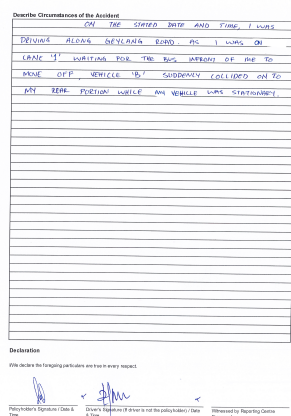 Describe Circumstances of the Accident
ON THE STATED DATE AND TIME, I WAS
DRIVING ALONG GEYLANG ROAD. AS I WAS ON
LANE '1' WAITING FOR THE BUS INFRONT OF ME TO
MOVE OFF, VEHICLE 'B' SUDDENLY COLLIDED ON TO
MY REAR PORTION WHILE MY VEHICLE WAS STATIONARY.
Declaration
I/We declare the foregoing particulars are true in every respect.
Policyholder's Signature / Date & Driver's Signature (If driver is not the policyholder) / Date Witnessed by Reporting Centre
Time & Time